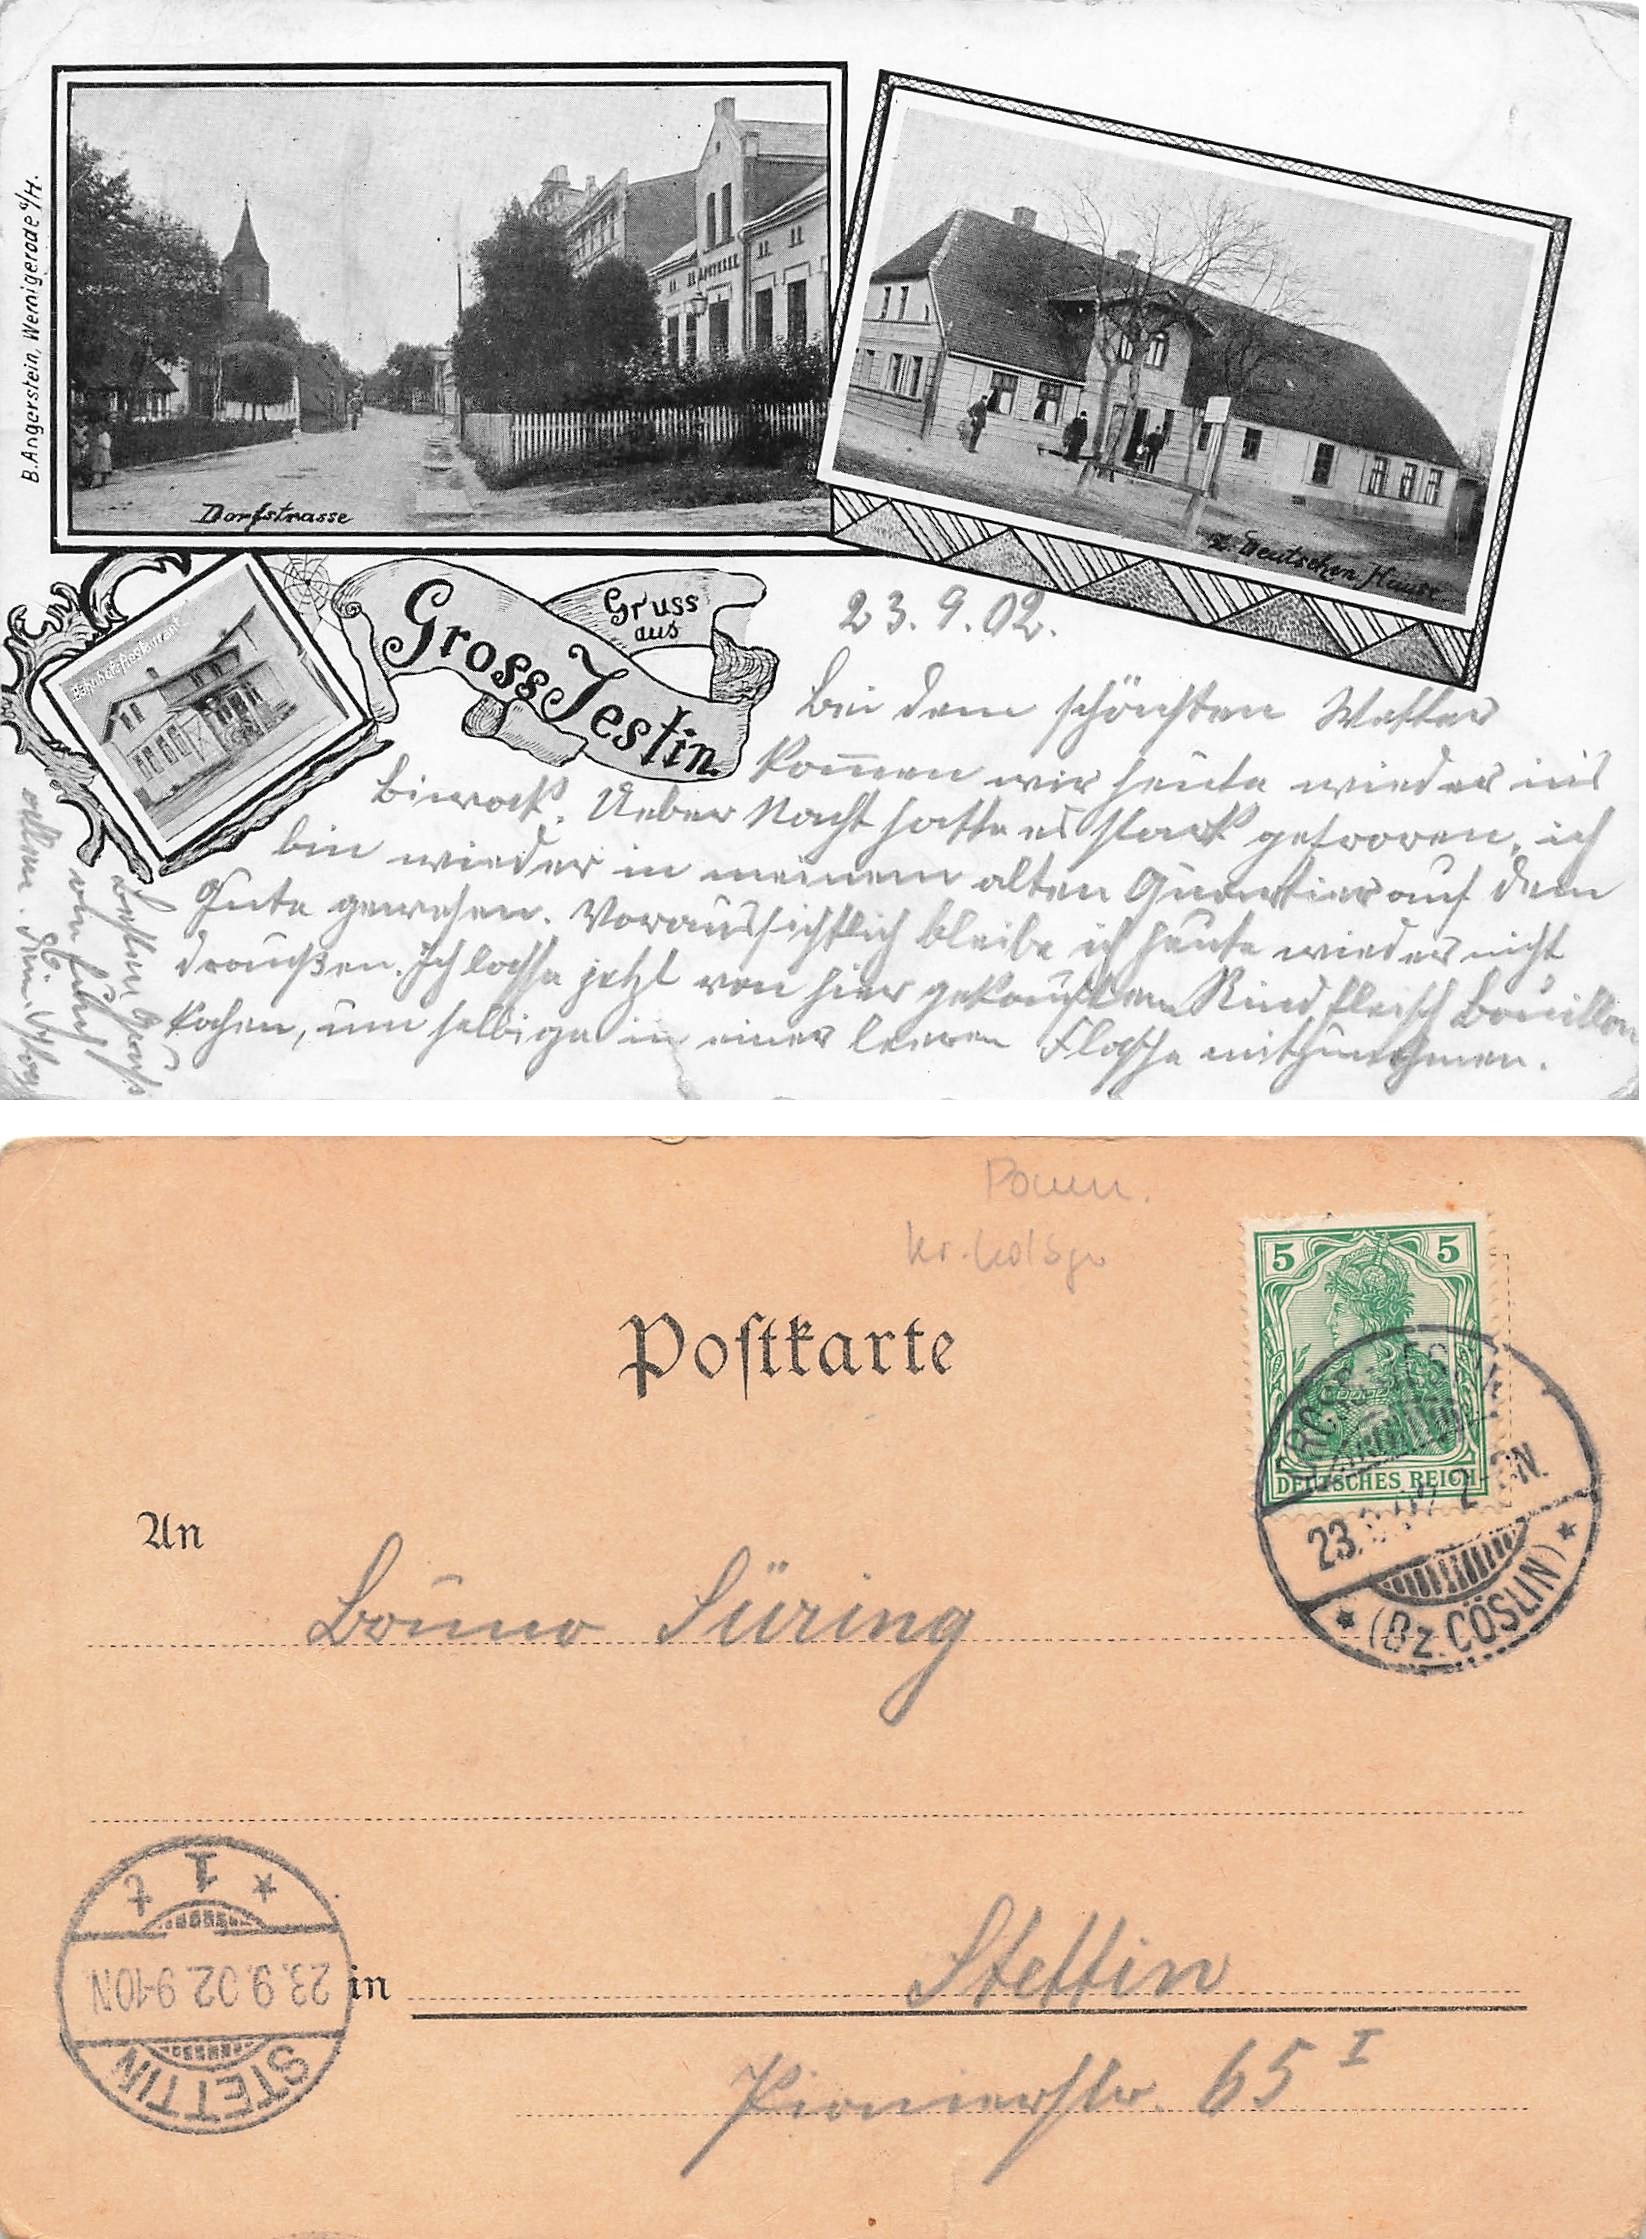 B. Angerstein, Wernigerode a/H.
APOTHEKE
Dorfstrasse
z. Deutschen Hause
Bahnhofs Restaurant
Gruss
aus
Gross Jestin.
23. 9. 02.
Bei dem schönsten Wetter
kom̄en wir heute wieder ins
Biwack. Ueber Nacht hatte es stark gefroren, ich
bin wieder in meinem alten Quartier auf dem
Gute gewesen. Voraussichtlich bleibe ich heute wieder nicht
draußen. Ich lasse jetzt von hier gekauftem Rindfleisch Bouillon
kochen, um selbige in einer leeren Flasche mitzunehmen.
Besten Gruß
von Euch
allen. Dein
Pomm.
Kr. Kolbg
Postkarte
5 5
DEUTSCHES REICH
GROSS-JESTIN
23.9.02. 2-3N.
(Bz. CÖSLIN)
An
Bruno Süring
in
Stettin
Pionierstr. 65 I
STETTIN
23.9.02.9-10N
1
t